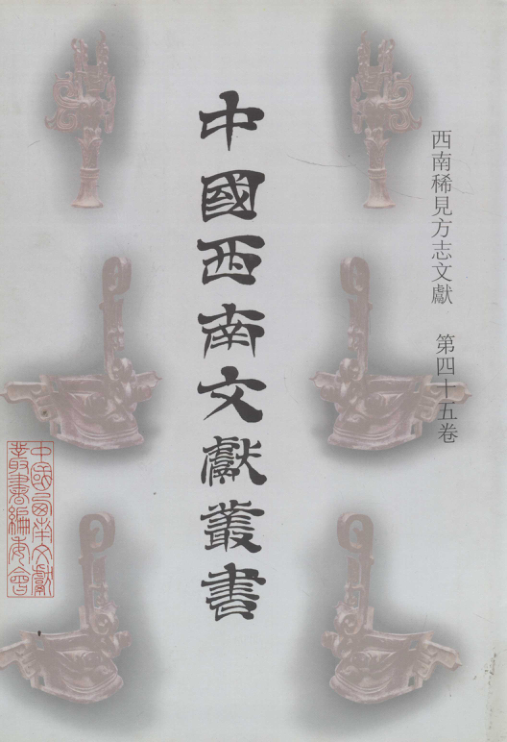 西南稀見方志文獻 第四十五卷
中國西南文獻叢書
中國西南文獻
叢書編委會